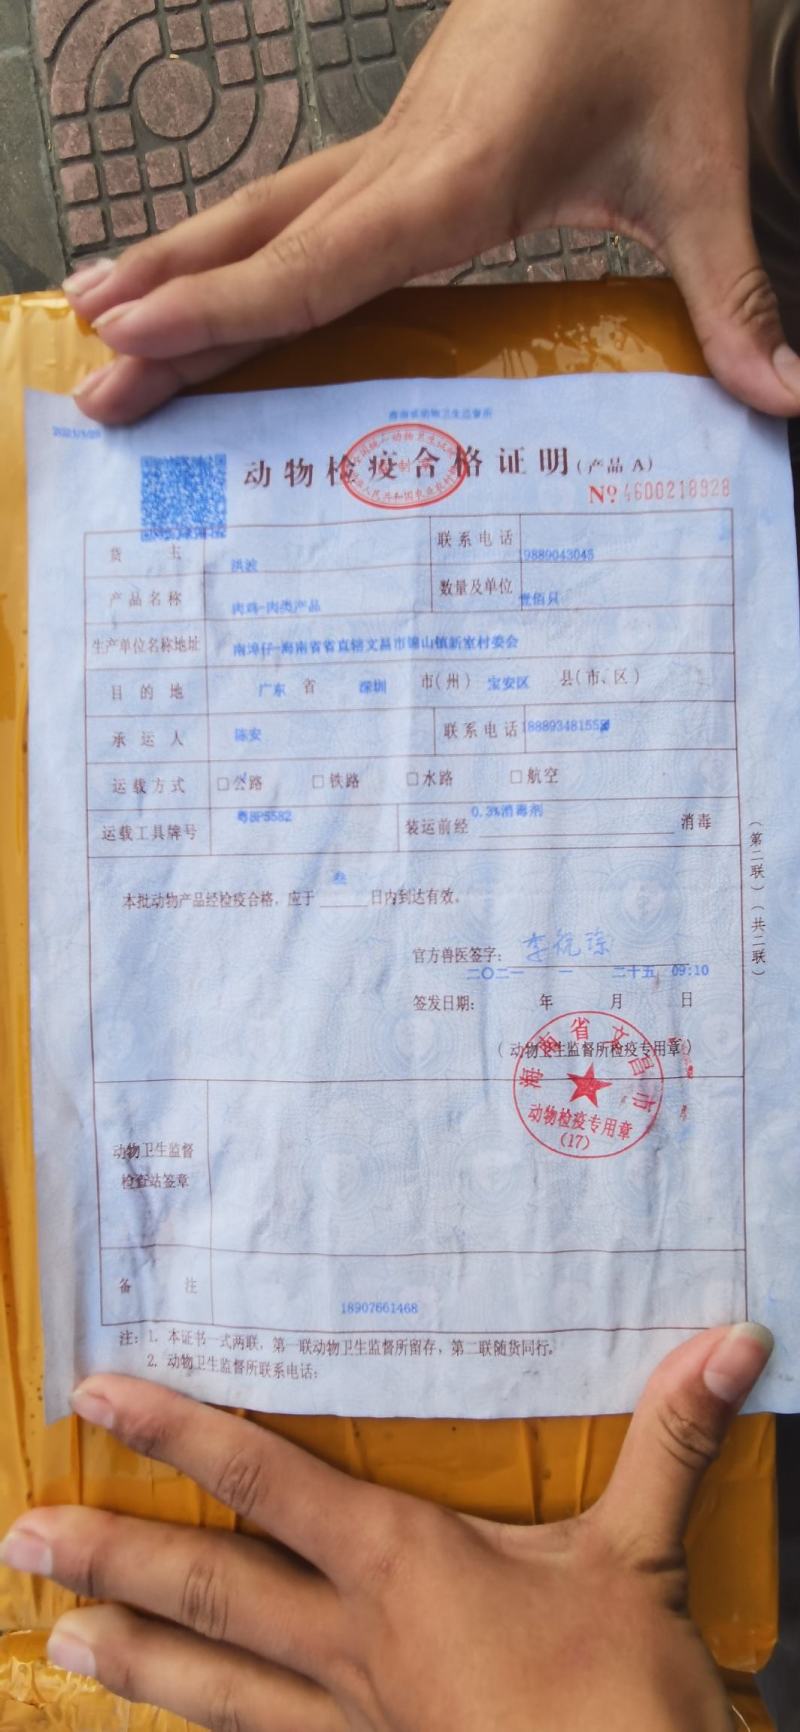 海南省动物卫生监督所
动物检疫合格证明(产品 A)
№ 4600218928
货 主 洪波 联系电话 19889043045
产品名称 肉鸡-肉类产品 数量及单位 壹佰只
生产单位名称地址 南埠仔-海南省省直辖文昌市锦山镇新室村委会
目的地 广东 省 深圳 市(州) 宝安区 县(市、区)
承运人 陈安 联系电话
运载方式 □公路 □铁路 □水路 □航空
运载工具牌号 装运前经 0.3%消毒剂 消毒
本批动物产品经检疫合格,应于 叁 日内到达有效。
官方兽医签字:
二〇二一 一 二十五 09:10
签发日期: 年 月 日
(动物卫生监督所检疫专用章)
海南省文昌市
动物检疫专用章
(17)
动物卫生监督
检查站签章
备 注 18907661468
注:1. 本证书一式两联,第一联动物卫生监督所留存,第二联随货同行。
2. 动物卫生监督所联系电话:
(第二联)(共二联)